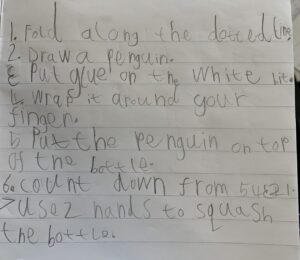 1. Fold along the dotted line
2. Draw a penguin.
3 Put glue on the white bit.
4 wrap it around your
finger.
5 Put the penguin on top
of the bottle.
6. count down from 54321.
7 use 2 hands to squash
the bottle.